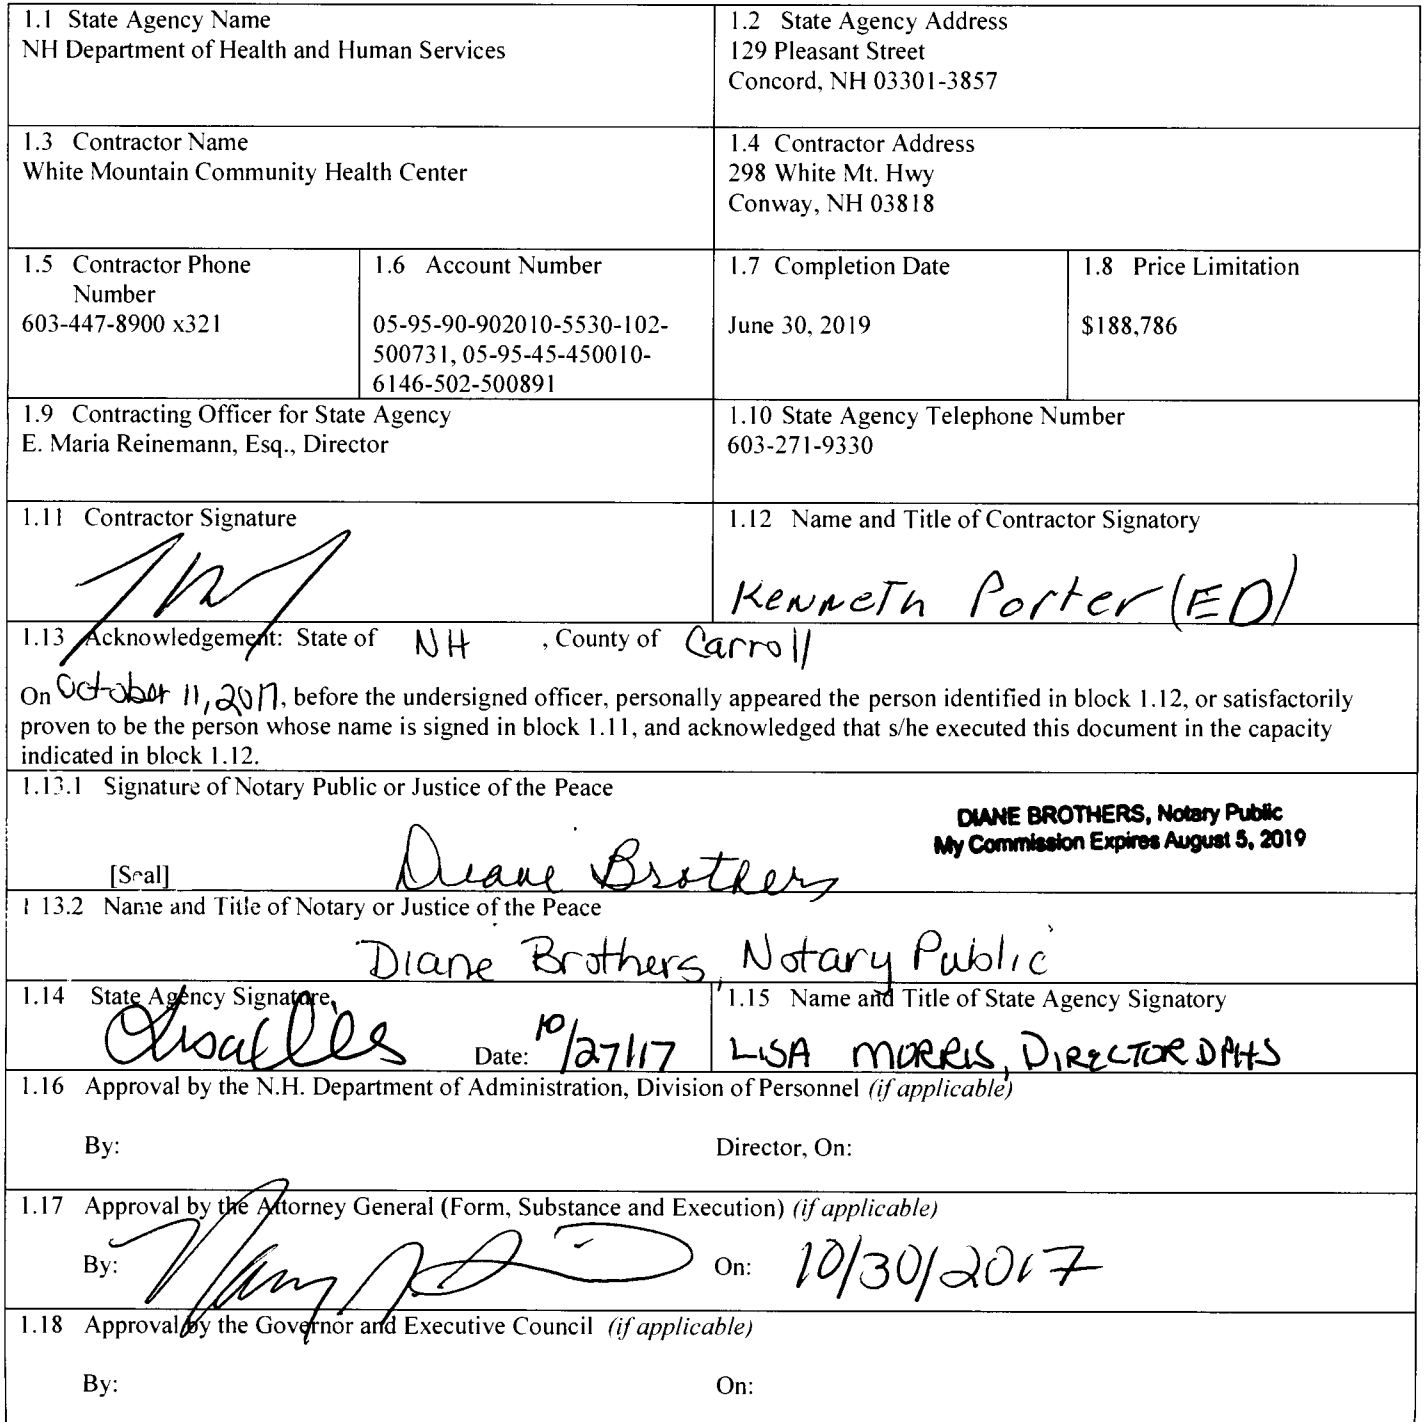 1.1 State Agency Name
NH Department of Health and Human Services
1.2 State Agency Address
129 Pleasant Street
Concord, NH 03301-3857
1.3 Contractor Name
White Mountain Community Health Center
1.4 Contractor Address
298 White Mt. Hwy
Conway, NH 03818
1.5 Contractor Phone
Number
603-447-8900 x321
1.6 Account Number
05-95-90-902010-5530-102-
500731, 05-95-45-450010-
6146-502-500891
1.7 Completion Date
June 30, 2019
1.8 Price Limitation
$188,786
1.9 Contracting Officer for State Agency
E. Maria Reinemann, Esq., Director
1.10 State Agency Telephone Number
603-271-9330
1.11 Contractor Signature
1.12 Name and Title of Contractor Signatory
Kenneth Porter (ED)
1.13 Acknowledgement: State of NH , County of Carroll
On October 11, 2017, before the undersigned officer, personally appeared the person identified in block 1.12, or satisfactorily
proven to be the person whose name is signed in block 1.11, and acknowledged that s/he executed this document in the capacity
indicated in block 1.12.
1.13.1 Signature of Notary Public or Justice of the Peace
DIANE BROTHERS, Notary Public
My Commission Expires August 5, 2019
[Seal] Diane Brothers
1 13.2 Name and Title of Notary or Justice of the Peace
Diane Brothers, Notary Public
1.14 State Agency Signature
Date: 10/27/17
1.15 Name and Title of State Agency Signatory
LISA MORRIS, DIRECTOR DPHS
1.16 Approval by the N.H. Department of Administration, Division of Personnel (if applicable)
By: Director, On:
1.17 Approval by the Attorney General (Form, Substance and Execution) (if applicable)
By: On: 10/30/2017
1.18 Approval by the Governor and Executive Council (if applicable)
By: On: